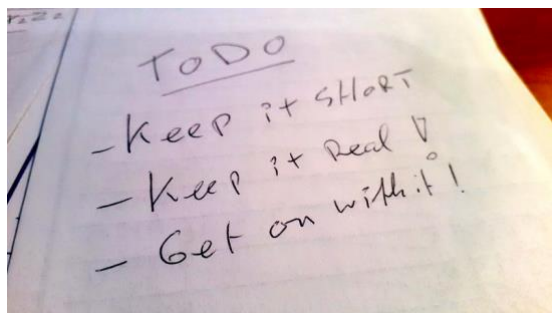 TODO
- Keep it SHORT
- Keep it Real !
- Get on with it !